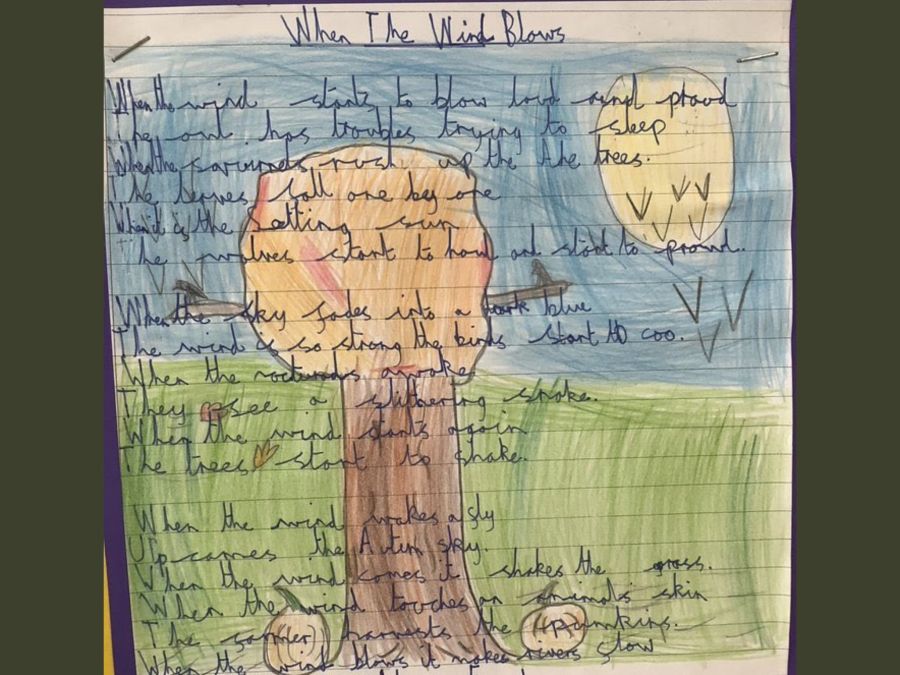 When The Wind Blows
When the wind starts to blow loud and proud
The owl has troubles trying to sleep
When the squirrels rush up the the trees.
The leaves fall one by one
When it is the setting sun
The wolves start to howl and start to prowl.
When the sky fades into a dark blue
The wind is so strong the birds start to coo.
When the nocturnals awake
They see a slithering snake.
When the wind starts again
The trees start to shake.
When the wind wakes a sly
Up comes the Autum sky.
When the wind comes it shakes the grass.
When the wind touches an animals skin
The farmer harvests the pumkins.
When the wind blows it makes rivers flow